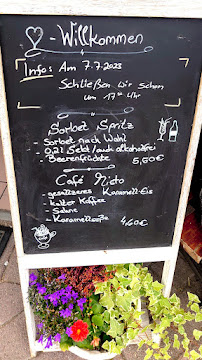 -Willkommen
Info: Am 7.7.2023
Schließen wir schon
um 17°° Uhr
Sorbet Spritz
- Sorbet nach Wahl
- 0,2l Sekt/auch alkoholfrei
- Beerenfrüchte 5,60€
Café Misto
- gesalzenes Karamell-Eis
- kalter Kaffee
- Sahne
- Karamellsoße 4,60€